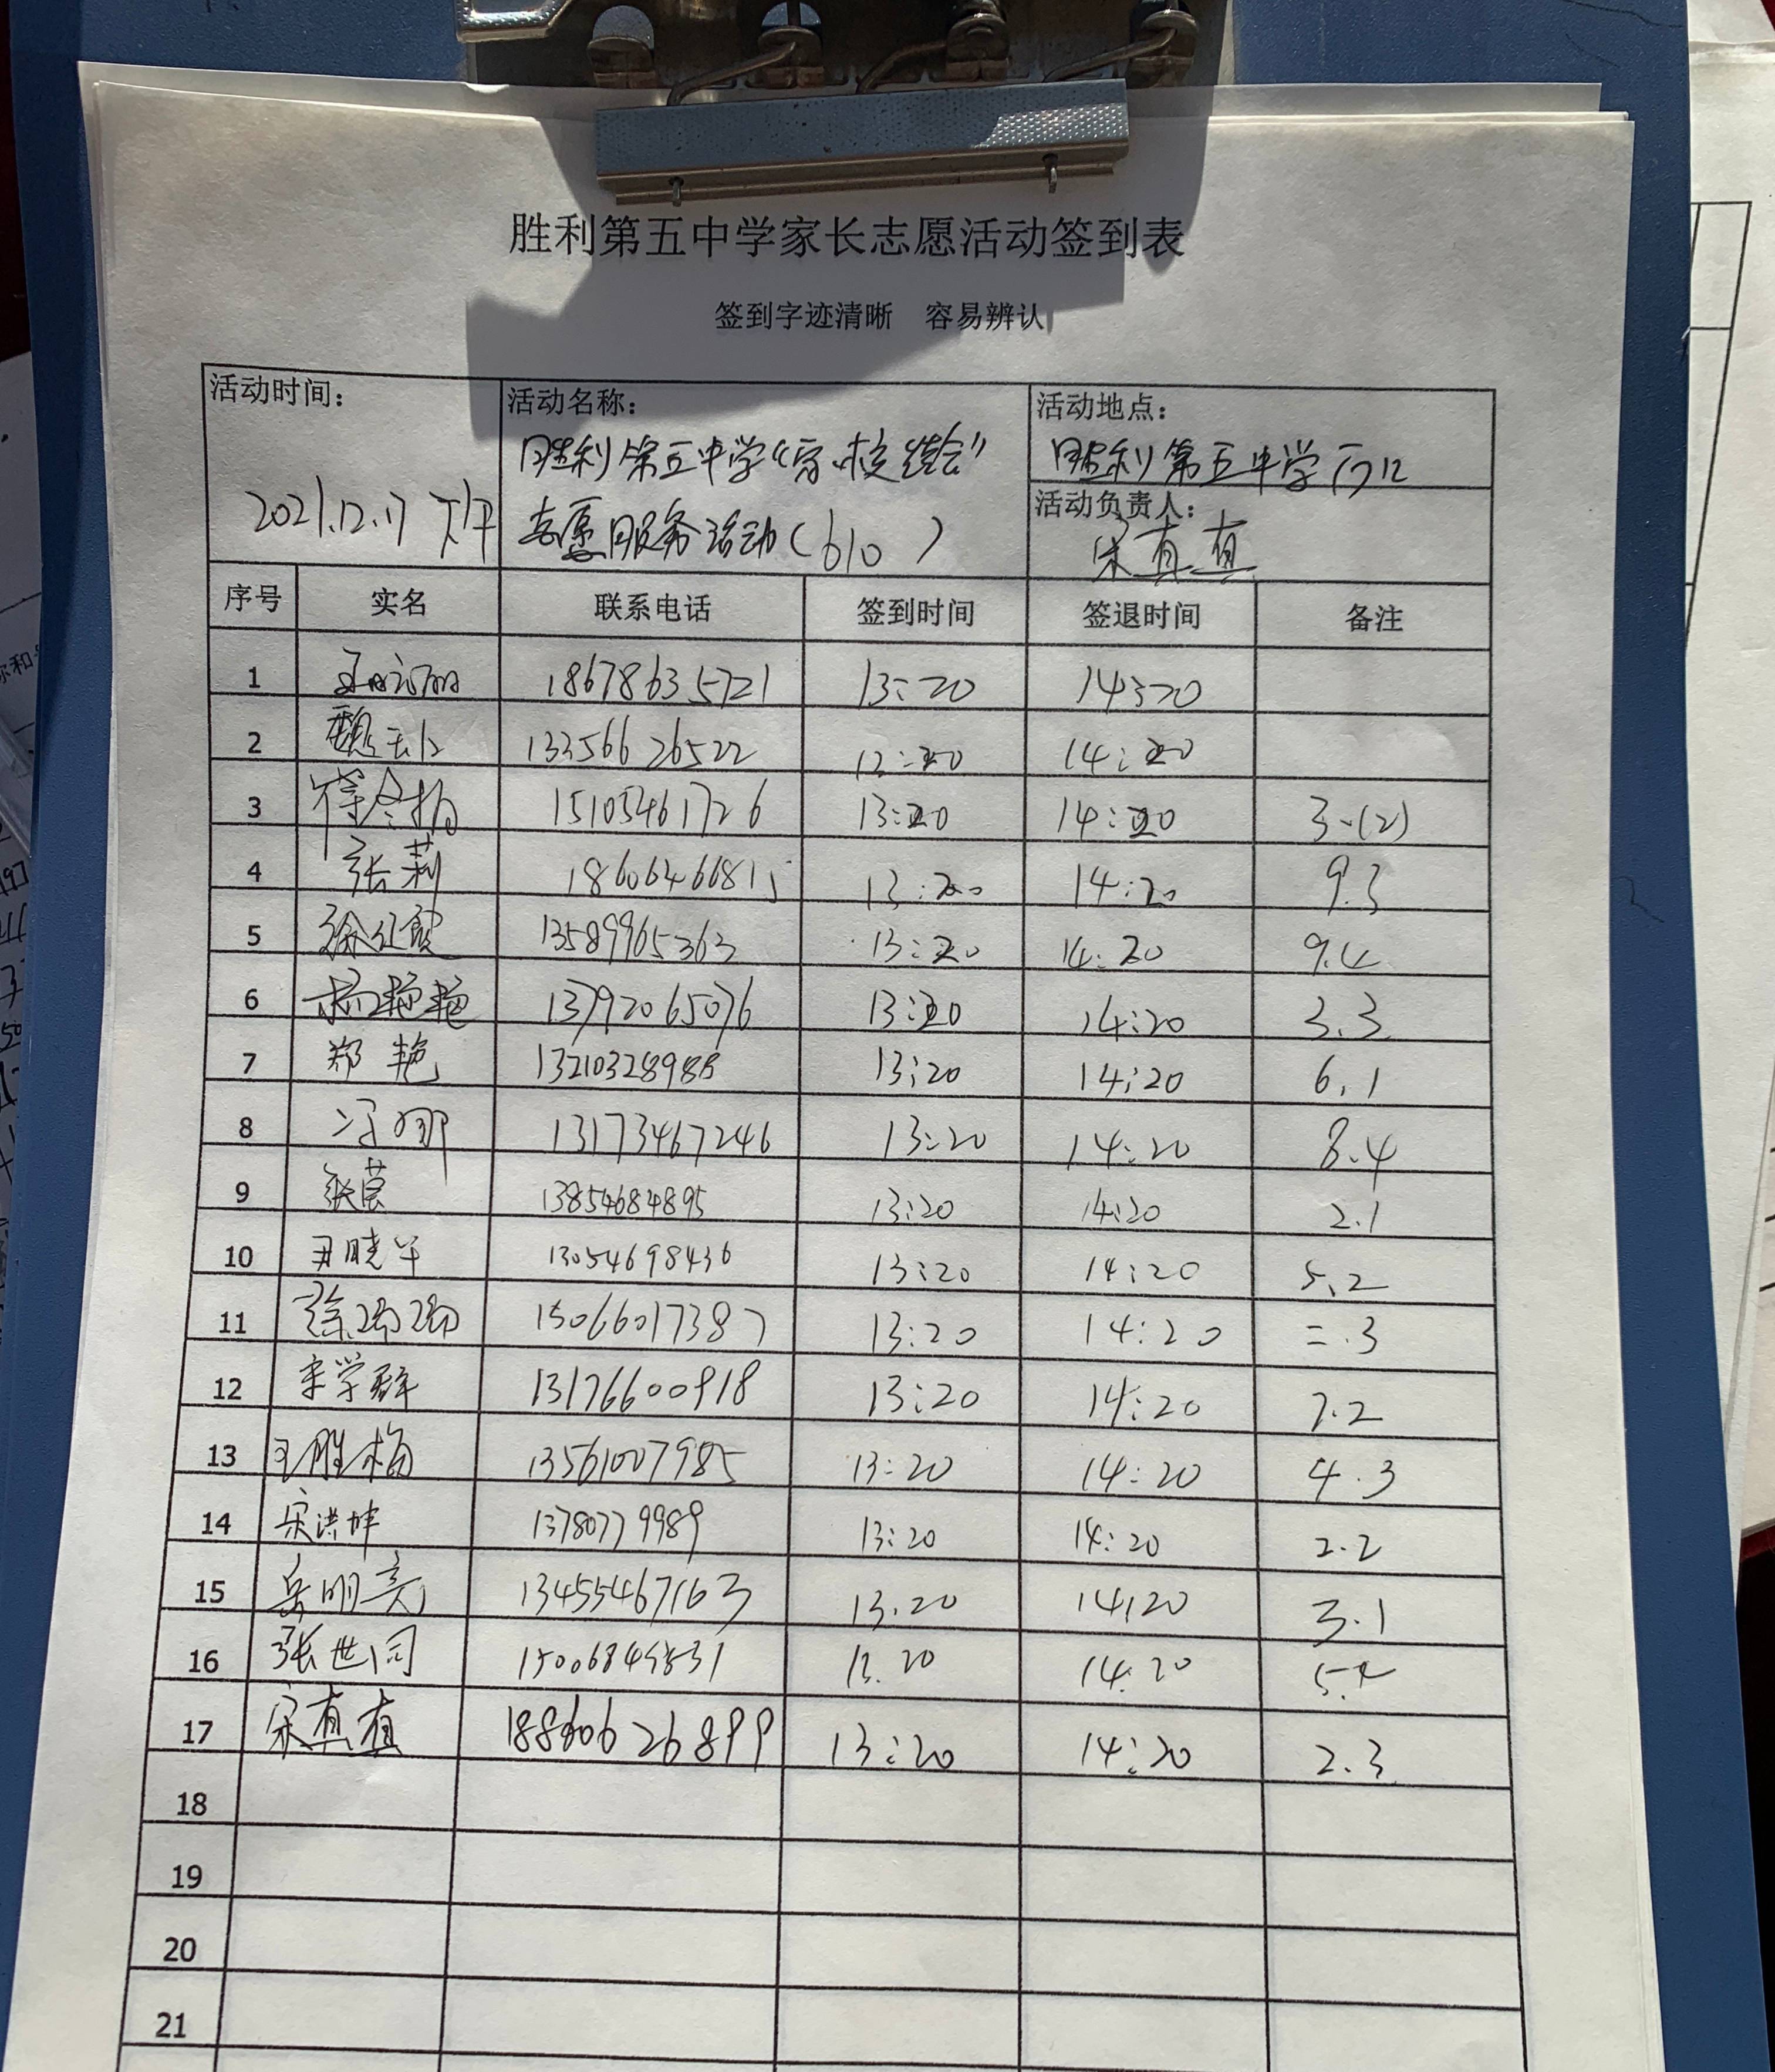 胜利第五中学家长志愿活动签到表
签到字迹清晰 容易辨认
活动时间: 2021.12.17 下午
活动名称: 胜利第五中学“家校
志愿服务活动(610)
活动地点: 胜利第五中学门口
活动负责人: 宋真真
序号 实名 联系电话 签到时间 签退时间 备注
1 18678635721 13:20 14:20
2 13356626522 13:20 14:20
3 15105461726 13:20 14:20 3.(2)
4 张莉 18606466815 13:20 14:20 9.3
5 13589965363 13:20 14:20 9.4
6 杨艳艳 13792065076 13:20 14:20 3.3
7 郑艳 13:20 14:20 6.1
8 冯娜 13173467246 13:20 14:20 8.4
9 13854684895 13:20 14:20 2.1
10 尹晓华 13054698436 13:20 14:20 5.2
11 徐瑞瑞 15066017387 13:20 14:20 二.3
12 李学群 13176600918 13:20 14:20 7.2
13 王胜梅 13561007985 13:20 14:20 4.3
14 宋洪坤 13780779989 13:20 14:20 2.2
15 岳明亮 13455467163 13.20 14:20 3.1
16 张世同 13.20 14:20
17 宋真真 13:20 14:20 2.3
18
19
20
21